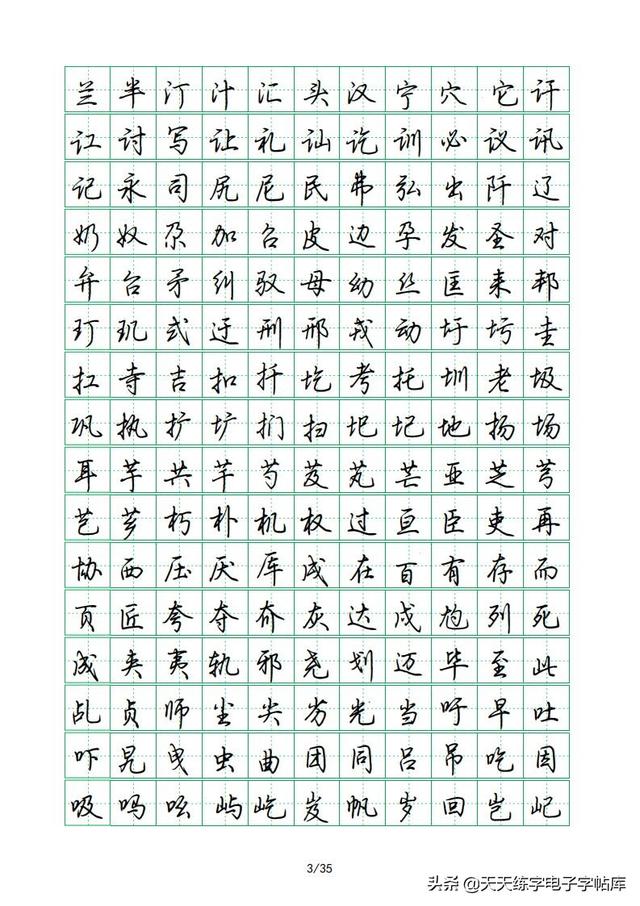 兰半汀汁汇头汉宁穴它讦
讧讨写让礼讪讫训必议讯
记永司尻尼民弗弘出阡辽
奶奴尕加召皮边孕发圣对
弁台矛纠驭母幼丝匡耒邦
玎玑式迂刑邢戎动圩圬圭
扛寺吉扣扦圪考托圳老圾
巩执扩圹扪扫圯圮地扬场
耳芋共芊芍芨芄芒亚芝芎
芑芗朽朴机权过亘臣吏再
协西压厌厍戌在百有存而
页匠夸夺夼灰达戍尥列死
成夹夷轨邪尧划迈毕至此
乩贞师尘尖劣光当吁早吐
吓晃曳虫曲团同吕吊吃因
吸吗吆屿屹岌帆岁回岂屺
3/35
头条 @天天练字电子字帖库